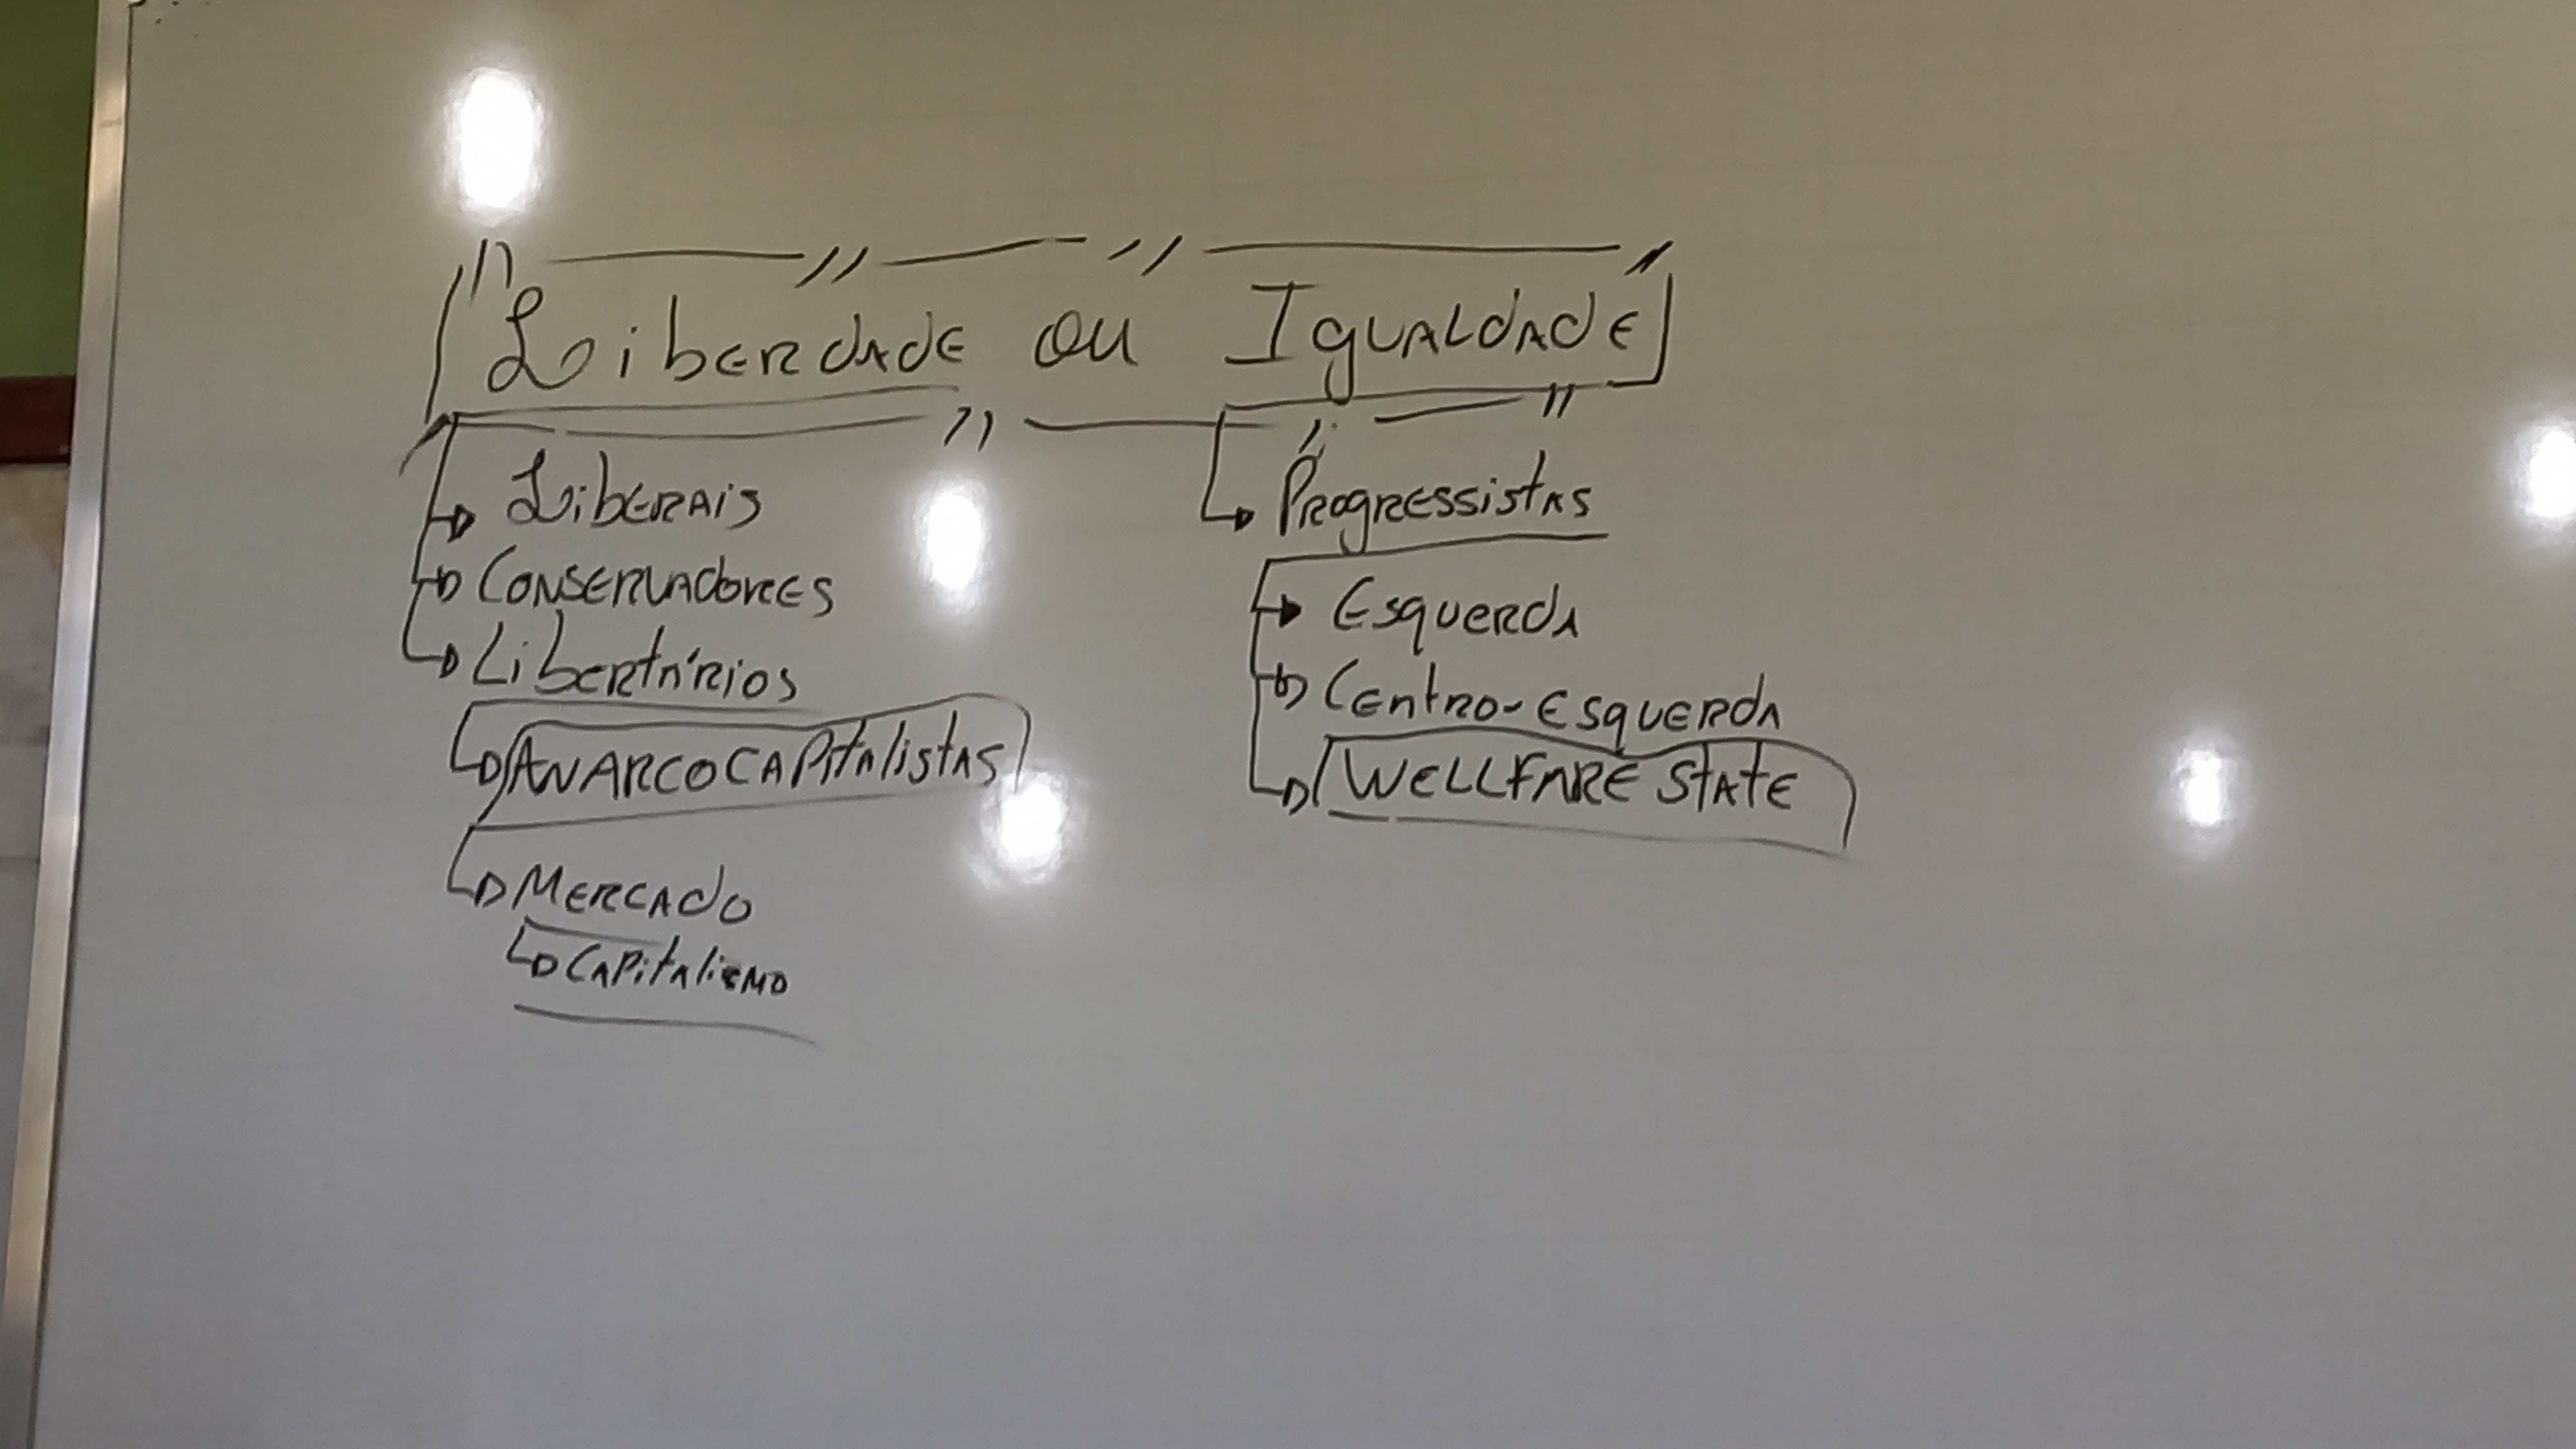 Liberdade ou Igualdade
Liberais
Conservadores
Libertários
Anarcocapitalistas
Mercado
Capitalismo
Progressistas
Esquerda
Centro-Esquerda
Wellfare State